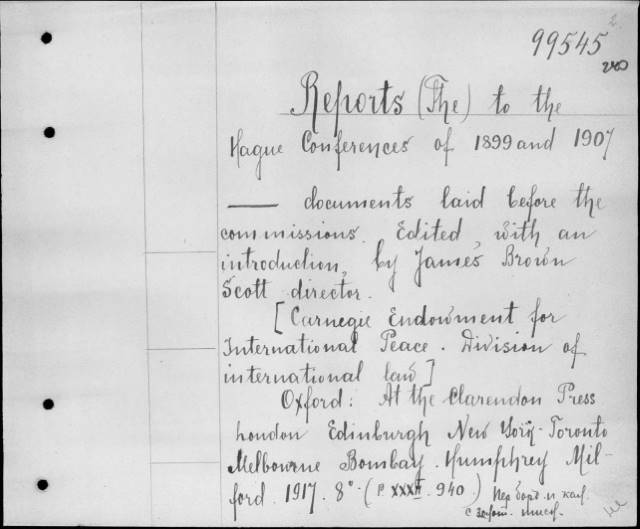 2
99545
Reports (The) to the
Hague Conferences of 1899 and 1907
—— documents laid before the
commissions. Edited, with an
introduction, by James Brown
Scott director.
[Carnegie Endowment for
International Peace. Division of
international law]
Oxford: At the Clarendon Press
London Edinburgh New York Toronto
Melbourne Bombay. Humphrey Mil-
ford. 1917. 8°. (P. XXXII. 940.)
с золот. тисн.